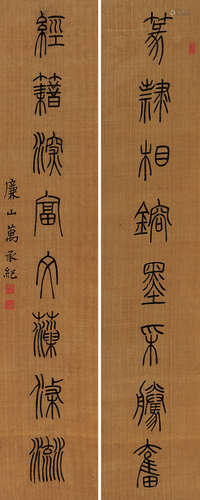 篆隸相鎔墨采騰奮
經籍深富文藻條流
廉山萬承紀